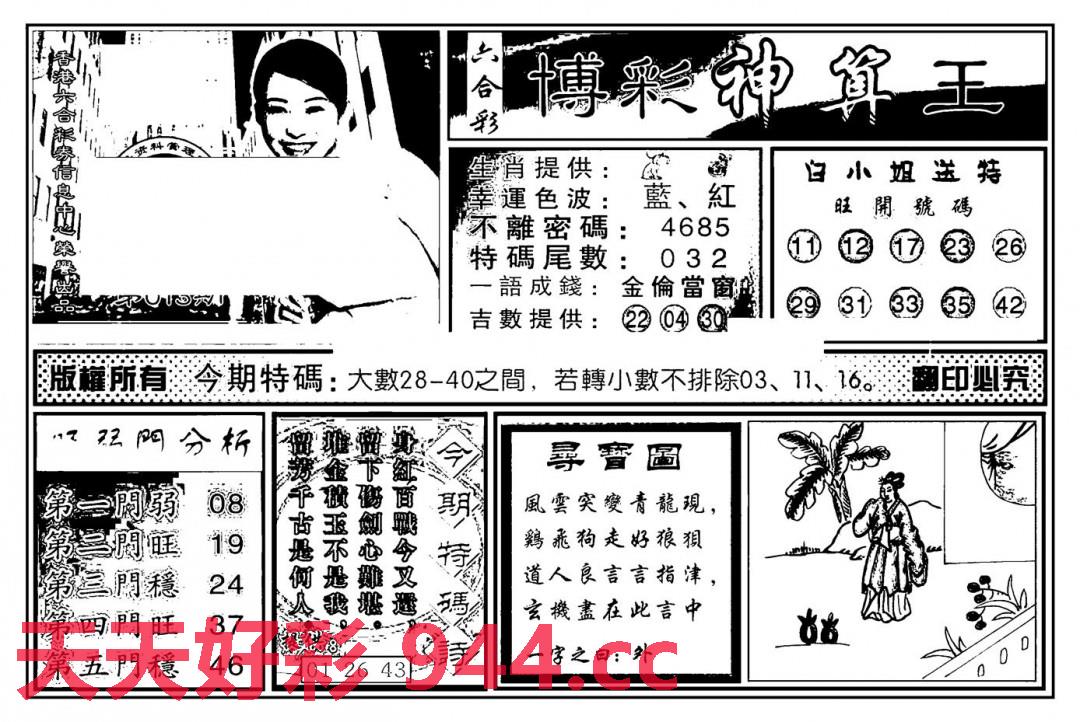 六合彩
博彩神算王
香港六合彩券信息中心榮譽出品
資料管理
第013期
生肖提供:
幸運色波: 藍、紅
不離密碼: 4685
特碼尾數: 032
一語成錢: 金倫當窗
吉數提供: 22 04 30
白小姐送特
旺開號碼
11 12 17 23 26
29 31 33 35 42
版權所有 今期特碼:大數28-40之間, 若轉小數不排除03、11、16。 翻印必究
旺門分析
第一門弱 08
第二門旺 19
第三門穩 24
第四門旺 37
第五門穩 46
今期特碼詩
身紅百戰今又還,
留下傷劍心難堪。
堆金積玉不是我,
留芳千古是何人。
提供:8
01 26 43
尋寶圖
風雲突變青龍現,
鷄飛狗走好狼狽
道人良言言指津,
玄機盡在此言中
一字之曰:外
天天好彩 944.cc